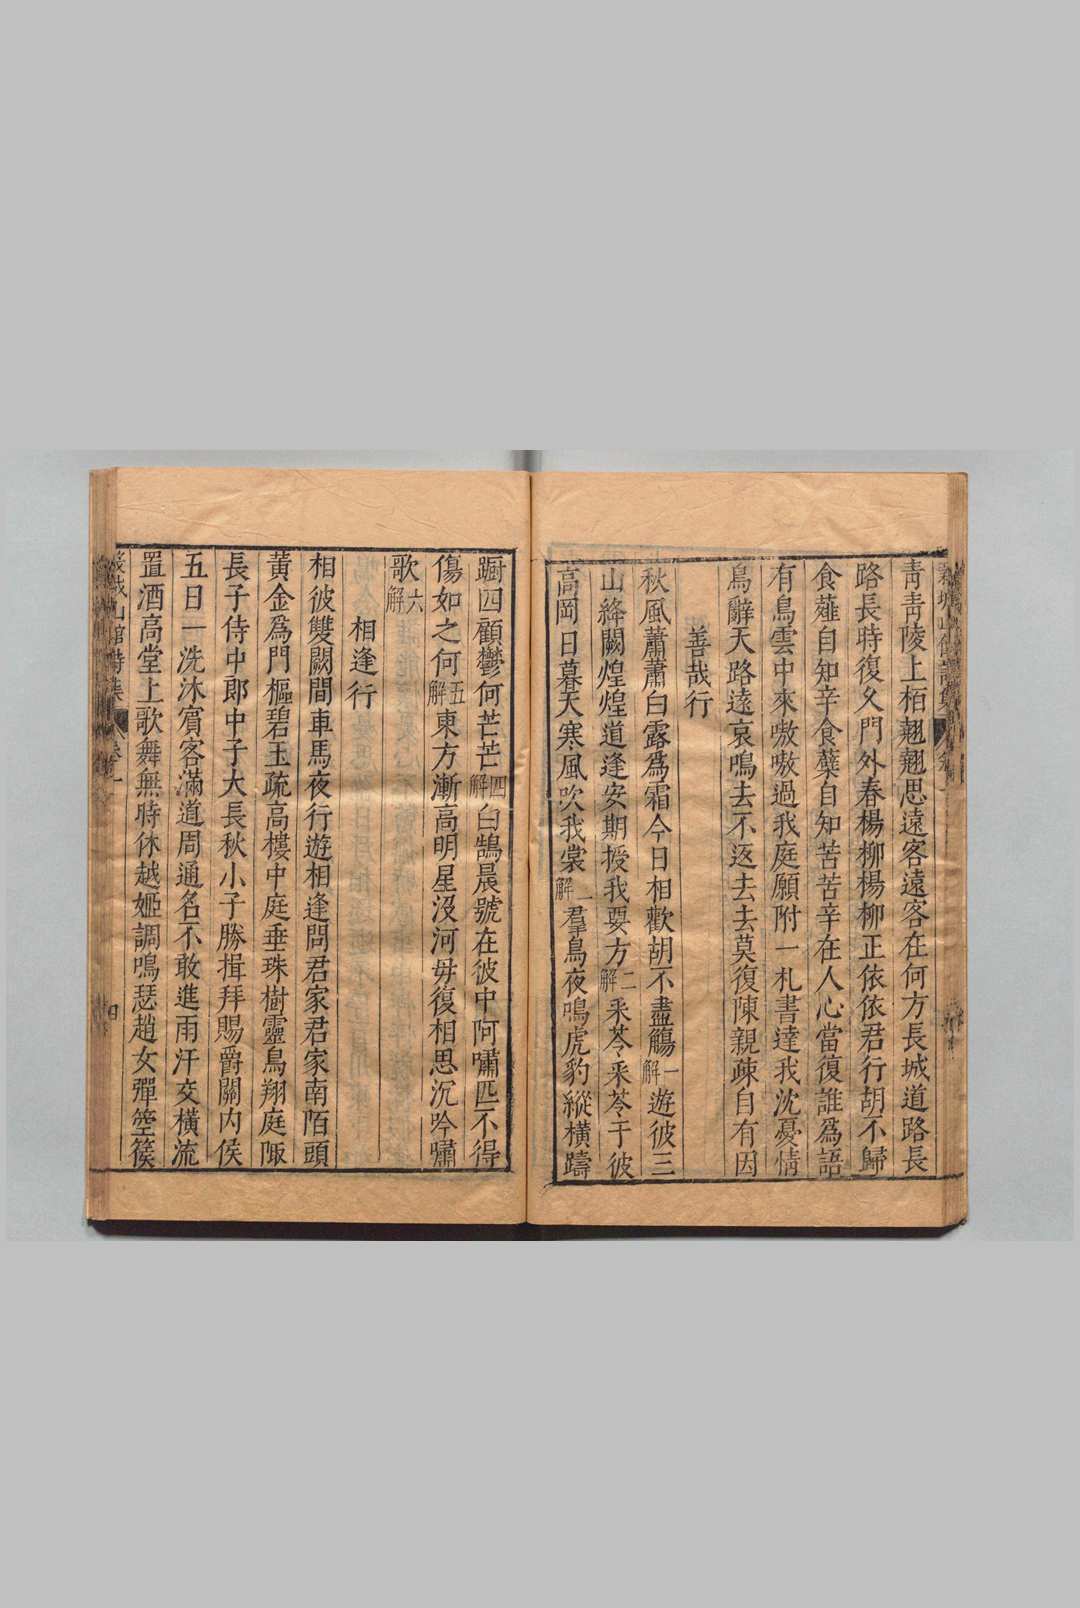 青青陵上栢翹翹思遠客遠客在何方長城道路長
路長時復久門外春楊柳楊柳正依依君行胡不歸
食薤自知辛食蘗自知苦苦辛在人心當復誰為語
有鳥雲中來嗷嗷過我庭願附一札書達我沈憂情
鳥辭天路遠哀鳴去不返去去莫復陳親疎自有因
善哉行
秋風蕭蕭白露為霜今日相歡胡不盡觴一解遊彼三
山絳闕煌煌道逢安期授我要方二解采苓采苓于彼
高岡日暮天寒風吹我裳一解羣鳥夜鳴虎豹縱橫躊
蹰四顧鬱何芒芒四解白鵠晨號在彼中阿嘯匹不得
傷如之何五解東方漸高明星沒河毋復相思沉吟嘯
歌六解
相逢行
相彼雙闕間車馬夜行遊相逢問君家君家南陌頭
黃金為門樞碧玉疏高樓中庭垂珠樹靈鳥翔庭陬
長子侍中郎中子大長秋小子勝揖拜賜爵關內侯
五日一洗沐賓客滿道周通名不敢進雨汗交橫流
置酒高堂上歌舞無時休越姬調鳴瑟趙女彈箜篌
山館詩集 卷一 四